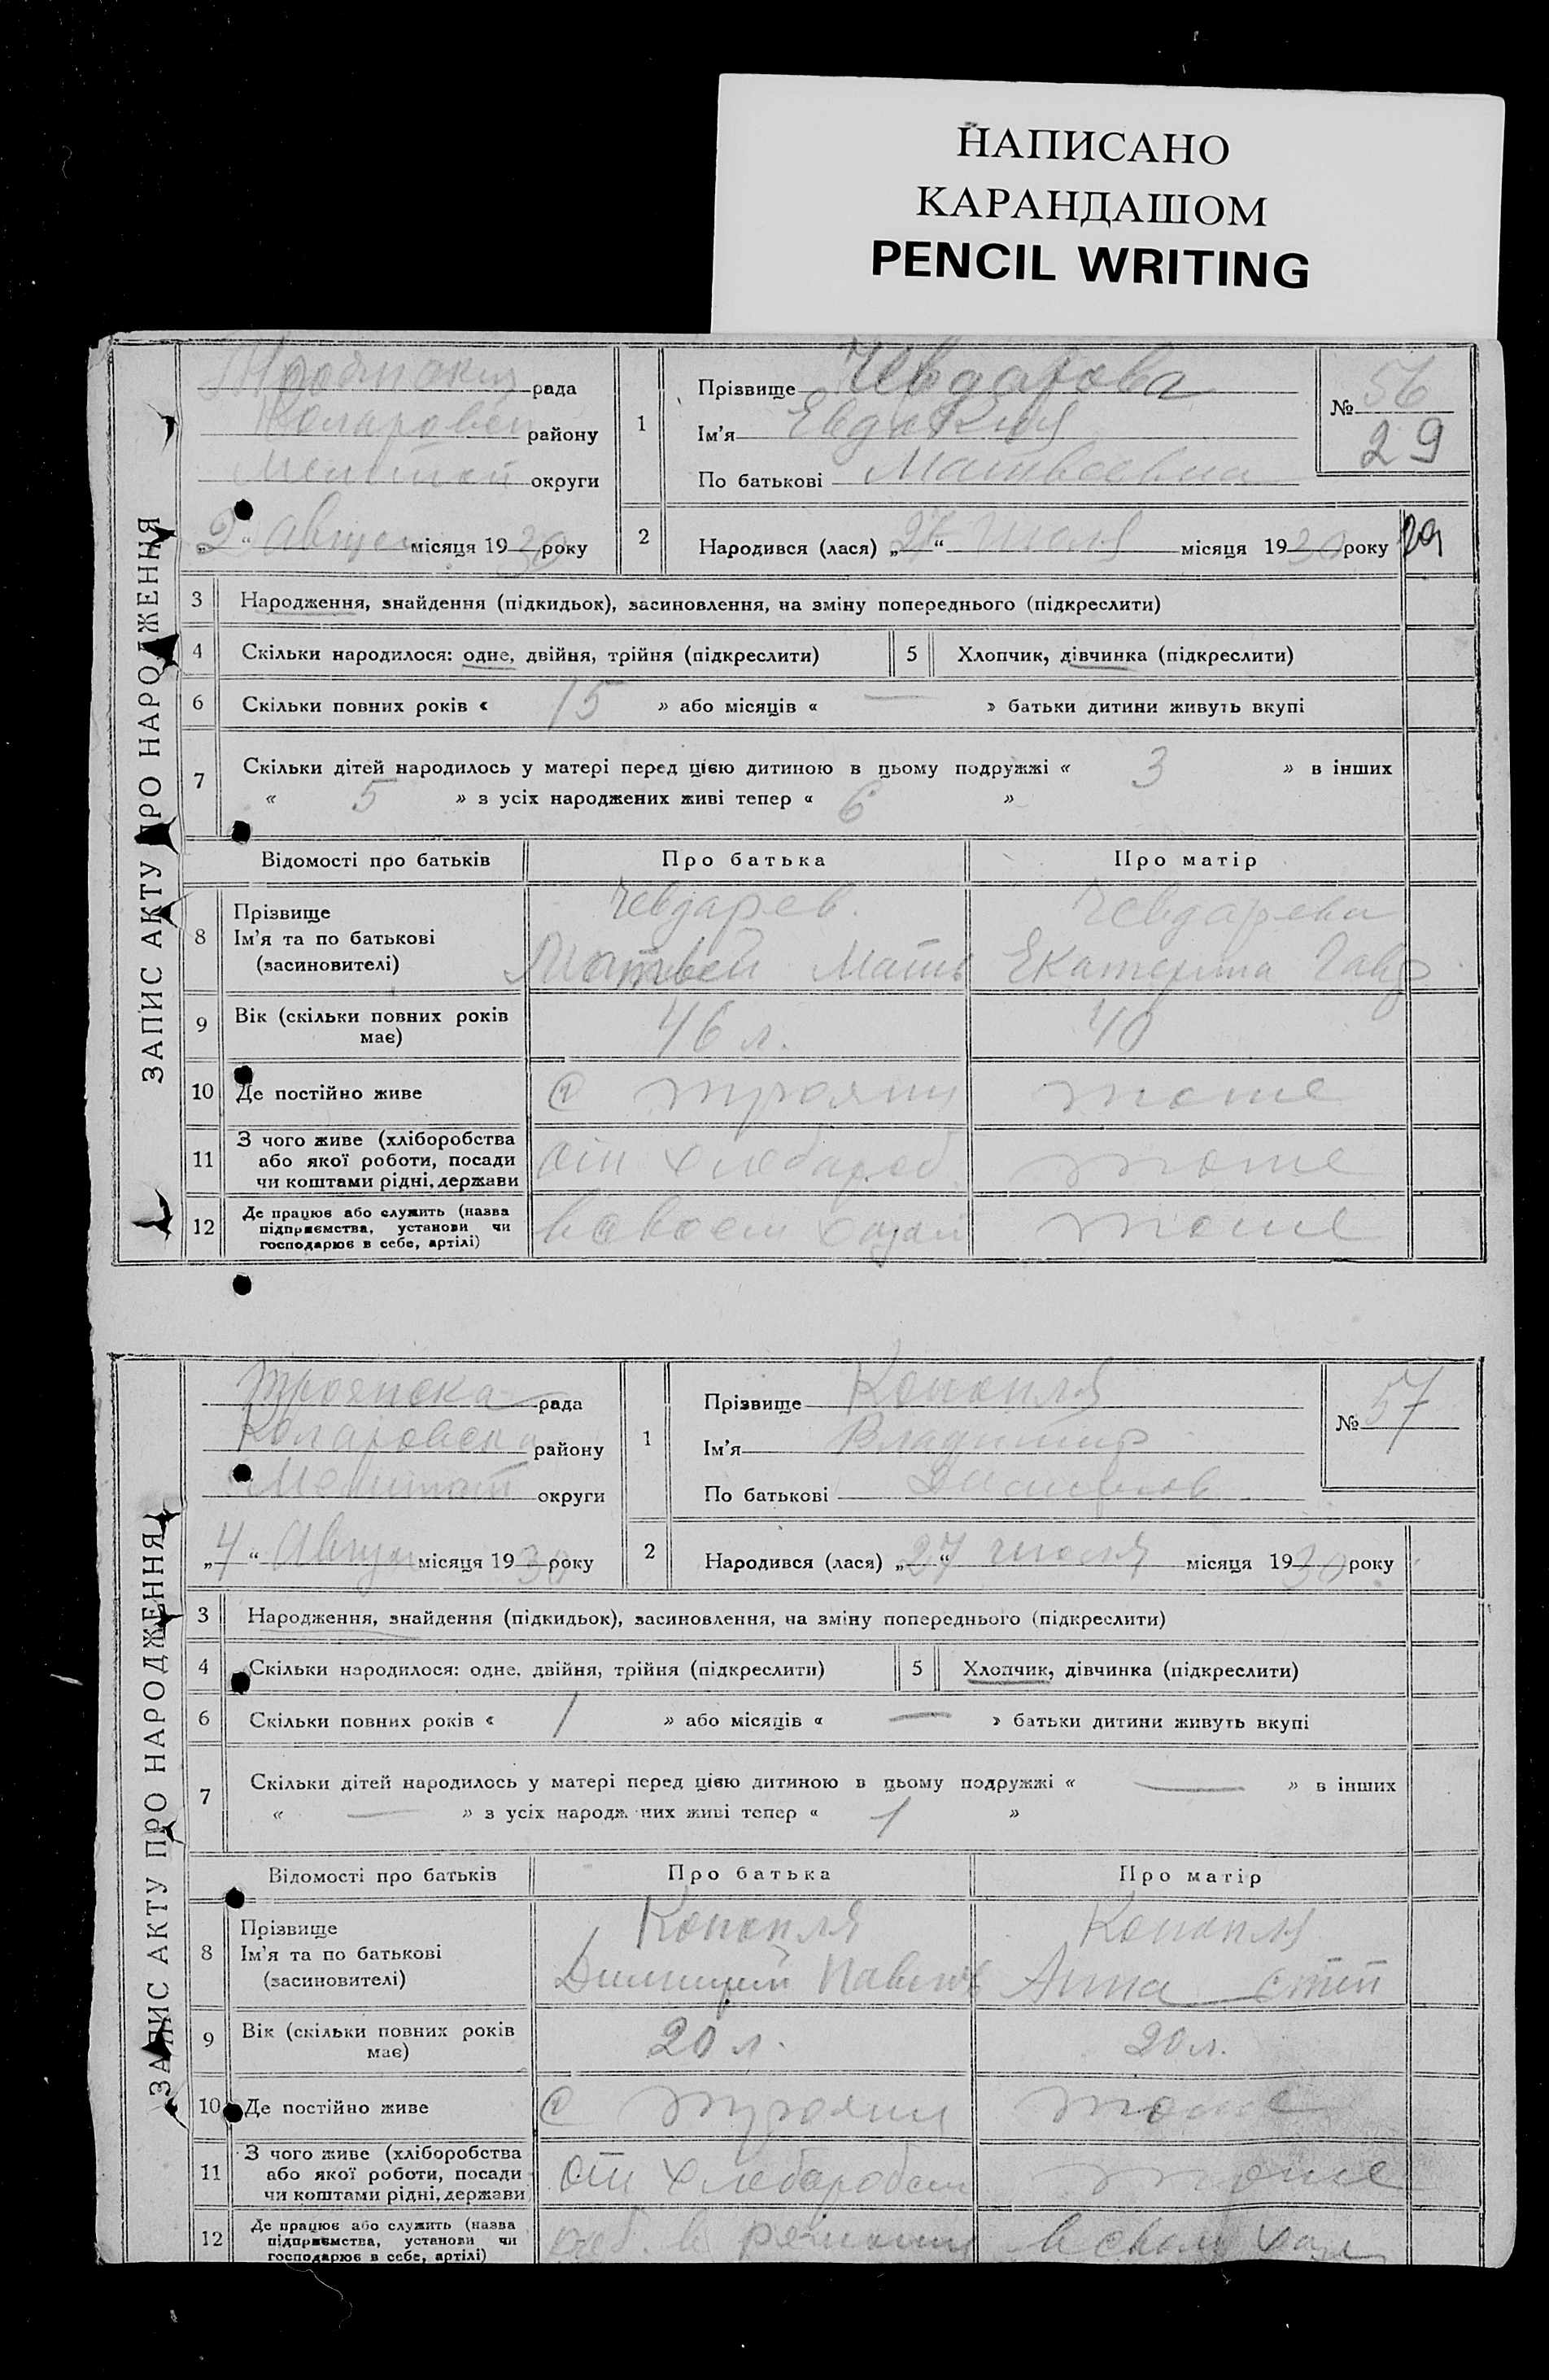 НАПИСАНО
КАРАНДАШОМ
PENCIL WRITING
ЗАПИС АКТУ ПРО НАРОДЖЕННЯ
рада
району
округи
„2“ август місяця 1930 року
1
Прізвище Чевдарова
Ім'я Евдокия
По батькові Матвеевна
№ 56
29
2
Народився (лася) „ “ июля місяця 1930 року
29
3 Народження, знайдення (підкидьок), засиновлення, на зміну попереднього (підкреслити)
4 Скільки народилося: одне, двійня, трійня (підкреслити) 5 Хлопчик, дівчинка (підкреслити)
6 Скільки повних років « 15 » або місяців « — » батьки дитини живуть вкупі
7 Скільки дітей народилось у матері перед цією дитиною в цьому подружжі « 3 » в інших
« 5 » з усіх народжених живі тепер « 6 »
Відомості про батьків Про батька Про матір
8 Прізвище Чевдарев Чевдарева
Ім'я та по батькові Матвей Матв Екатерина Гавр
(засиновителі)
9 Вік (скільки повних років має) 46 л. 40
10 Де постійно живе с трояни тоже
11 З чого живе (хліборобства або якої роботи, посади чи коштами рідні, держави от хлебароб тоже
12 Де працює або служить (назва підприємства, установи чи господарює в себе, артілі) тоже
ЗАПИС АКТУ ПРО НАРОДЖЕННЯ
Троянска рада
Коларовск району
округи
„4“ Август місяця 1930 року
1
Прізвище Конопля
Ім'я Владимир
По батькові
№ 57
2
Народився (лася) „27“ июля місяця 1930 року
3 Народження, знайдення (підкидьок), засиновлення, на зміну попереднього (підкреслити)
4 Скільки народилося: одне, двійня, трійня (підкреслити) 5 Хлопчик, дівчинка (підкреслити)
6 Скільки повних років « 1 » або місяців « — » батьки дитини живуть вкупі
7 Скільки дітей народилось у матері перед цією дитиною в цьому подружжі « — » в інших
« — » з усіх народж них живі тепер « 1 »
Відомості про батьків Про батька Про матір
8 Прізвище Конопля Конопля
Ім'я та по батькові Димитрий Павлов Анна Степ
(засиновителі)
9 Вік (скільки повних років має) 20 л. 20 л.
10 Де постійно живе с трояни тоже
11 З чого живе (хліборобства або якої роботи, посади чи коштами рідні, держави от хлебаробст тоже
12 Де працює або служить (назва підприємства, установи чи господарює в себе, артілі) в